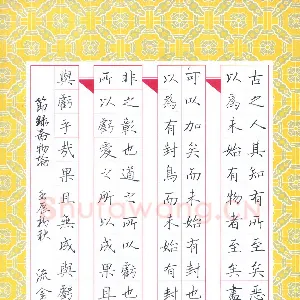 古之人其知有所至矣惡
以為未始有物者至矣盡
可以加矣而未始有
以為有封焉而未始有封
非之彰也道之所以虧也
所以虧愛之所以成果且
與虧乎哉果且無成與虧
節錄齊物論 秋 流金
Shufawang.CN